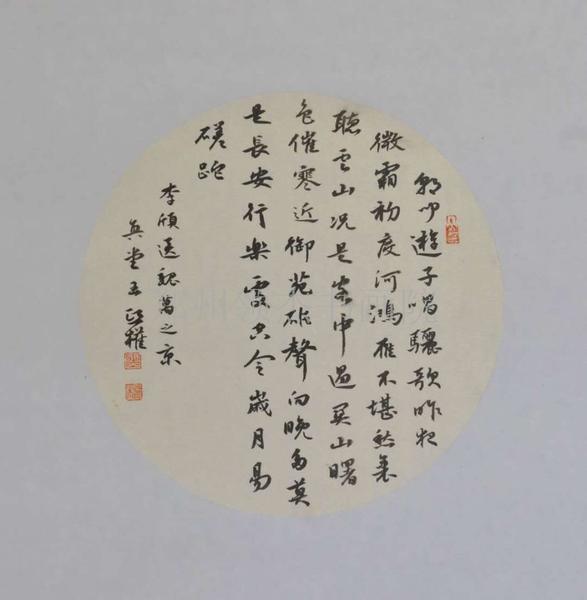 朝聞遊子唱驪歌昨夜
微霜初度河鴻雁不堪愁裏
聽雲山况是客中過關山曙
色催寒近御苑砧聲向晚多莫
是長安行樂處空令歲月易
蹉跎
李頎送魏萬之京
堂 權